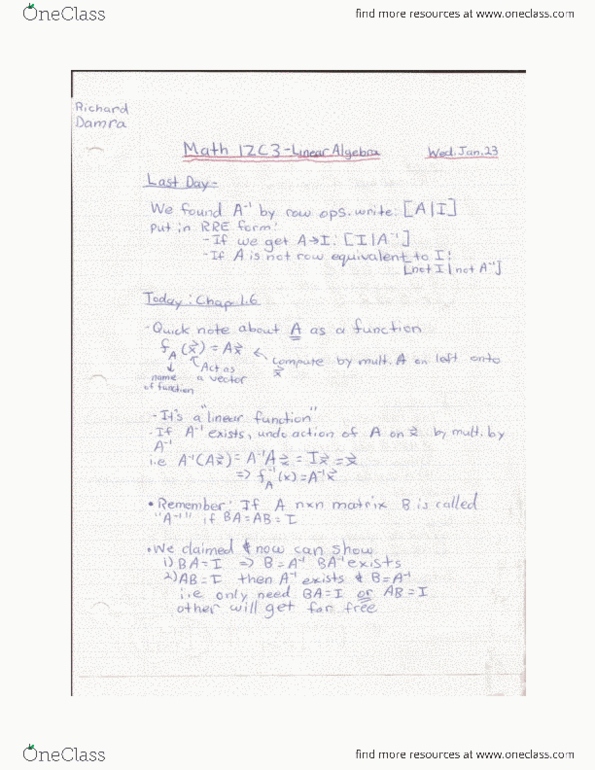 OneClass
find more resources at www.oneclass.com
Richard
Damra
Math 1ZC3-Linear Algebra Wed. Jan. 23
Last Day-
We found A⁻¹ by row ops. write: [A|I]
Put in RRE form:
-If we get A→I: [I|A⁻¹]
-If A is not row equivalent to I:
[not I|not A⁻¹]
Today: Chap 1.6
-Quick note about A as a function
f_A(x⃗)=Ax⃗ ← compute by mult. A on left onto x⃗
↓ name of function
↖ Act as a vector
-It's a "linear function"
-If A⁻¹ exists, undo action of A on x⃗ by mult. by
A⁻¹
i.e A⁻¹(Ax⃗)=A⁻¹Ax⃗=Ix⃗=x⃗
⇒ f_A⁻¹(x)=A⁻¹x⃗
• Remember: If A nxn matrix B is called
"A⁻¹" if BA=AB=I
• We claimed & now can show
1) BA=I ⇒ B=A⁻¹ BA⁻¹ exists
2) AB=I then A⁻¹ exists & B=A⁻¹
i.e only need BA=I or AB=I
other will get for free
OneClass
find more resources at www.oneclass.com